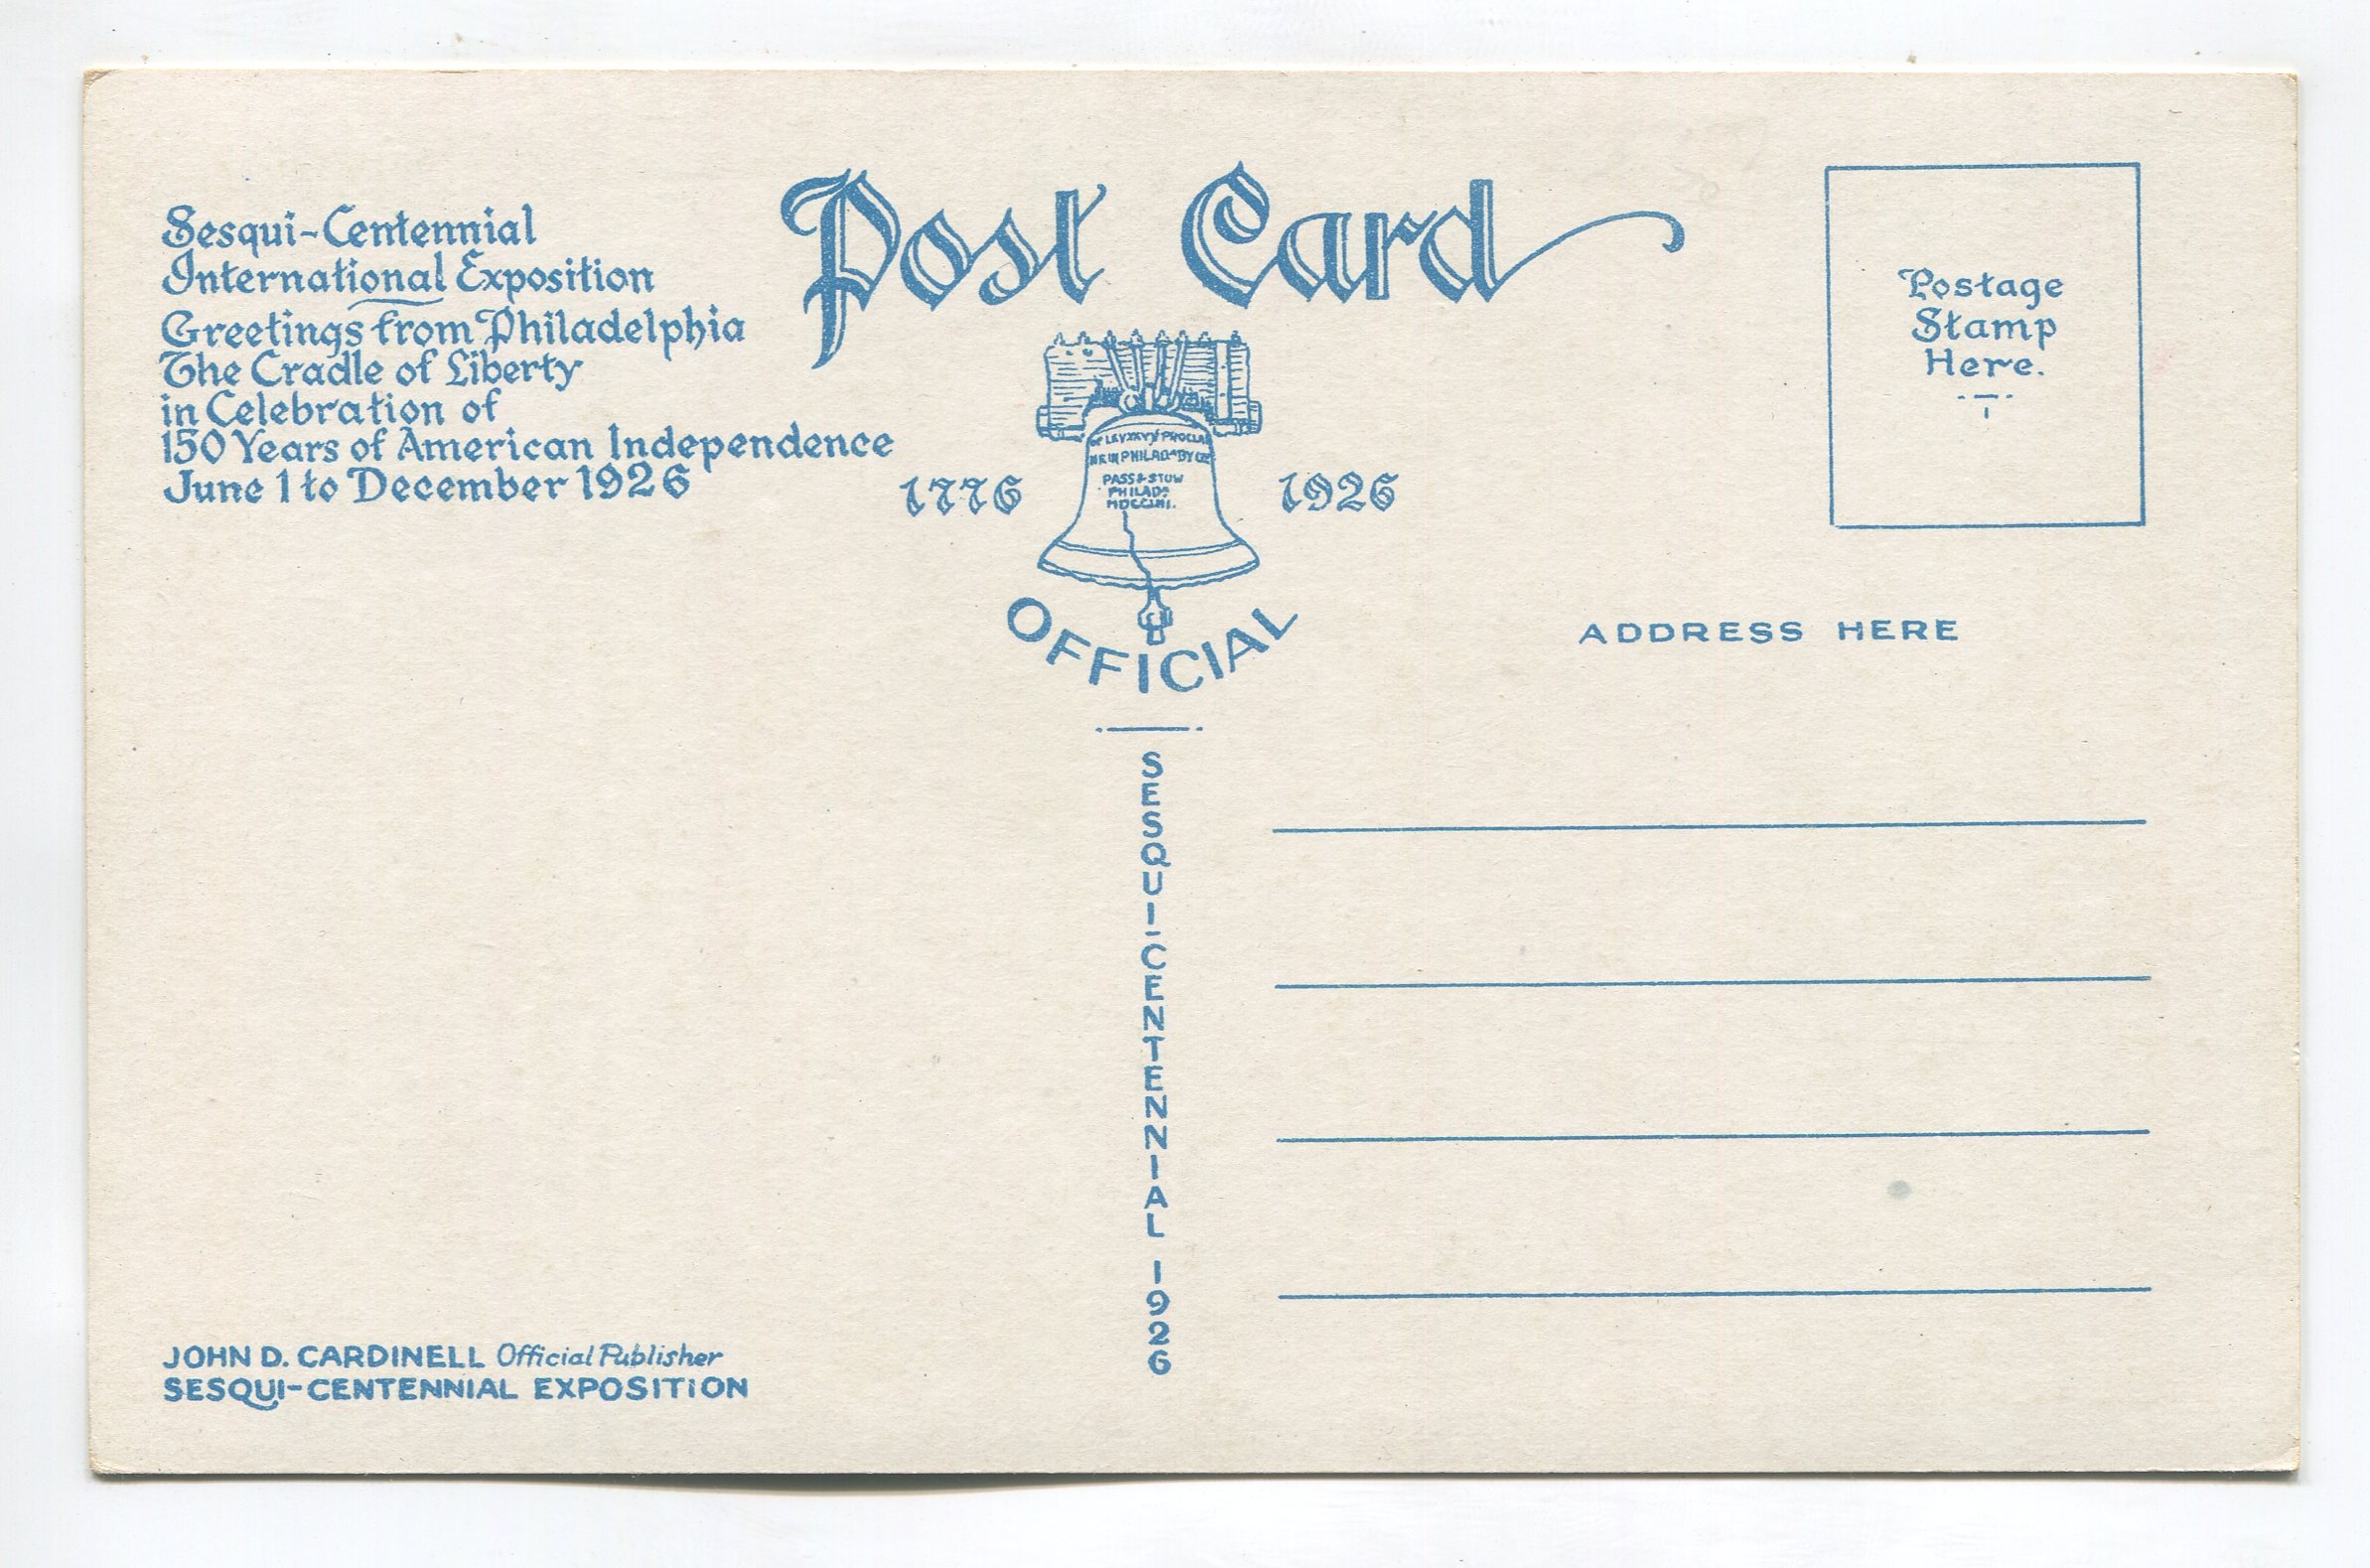 Post Card
Sesqui-Centennial
International Exposition
Greetings from Philadelphia
The Cradle of Liberty
in Celebration of
150 Years of American Independence
June 1 to December 1926
1776
PASS & STOW
PHILADA
MDCCLIII.
1926
OFFICIAL
Postage
Stamp
Here.
ADDRESS HERE
SESQUI-CENTENNIAL 1926
JOHN D. CARDINELL Official Publisher
SESQUI-CENTENNIAL EXPOSITION